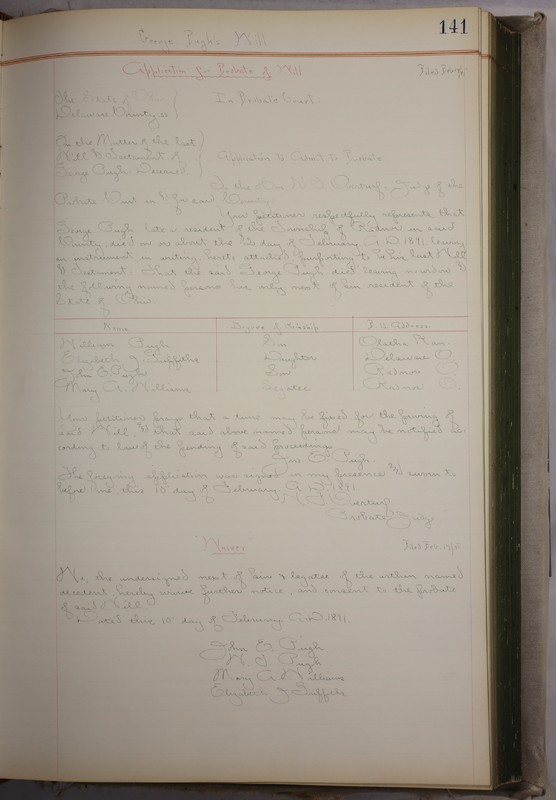 141
George Pugh's Will
Application for Probate of Will
Filed Feb 10/91
The State of Ohio
Delaware County, ss
In Probate Court.
In the Matter of the last
Will & Testament of
George Pugh Deceased
Application to Admit to Probate
To the Hon. Judge of the
Probate Court in & for said County.
Your petitioner respectfully represents that
George Pugh late a resident of the Township of Radnor in said
County, died on or about the 2d day of February A.D. 1891, leaving
an instrument in writing, hereto attached, purporting to be his last Will
& Testament. That the said George Pugh died leaving no widow &
the following named persons his only next of kin resident of the
State of Ohio.
Name Degree of Kinship P.O. Address.
Pugh Son Olathe Kan.
Elizabeth J Griffiths Daughter Delaware O.
John E. Pugh Son Radnor O.
Mary A. Williams Legatee Radnor O.
Your petitioner prays that a time may be fixed for the proving of
said Will, & that said above named persons may be notified ac-
cording to law of the pending of said proceedings.
Jno. E. Pugh.
The foregoing application was signed in my presence & sworn to
before me this 10" day of February, A.D. 1891
Probate Judge
"Waiver"
Filed Feb. 10/91
We, the undersigned next of kin & legatee of the within named
decedent hereby waive further notice, and consent to the probate
of said Will.
Dated this 10" day of February A.D. 1891.
John E. Pugh
Pugh
Mary A. Williams
Elizabeth J Griffiths